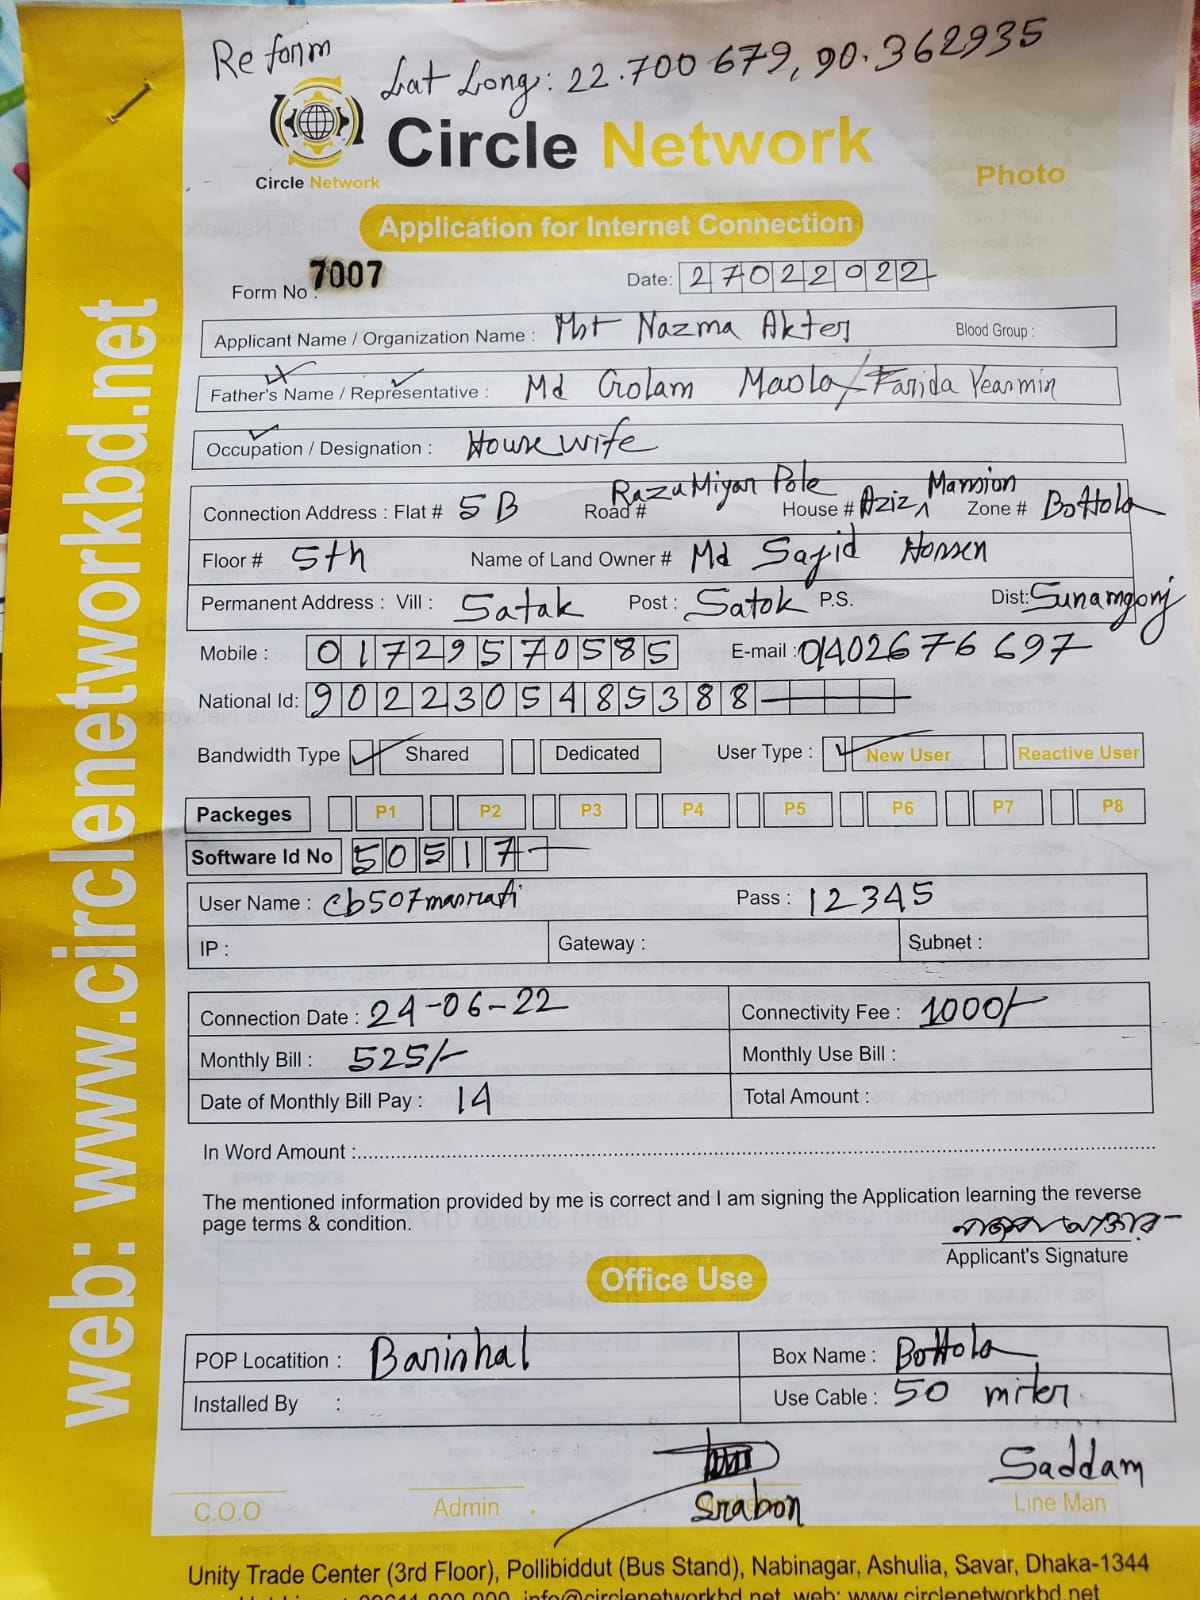 Re form
Lat Long: 22.700679, 90.362935
Circle Network
Circle Network
Photo
Application for Internet Connection
Form No : 7007
Date: 27022022
Applicant Name / Organization Name : Mst Nazma Akter Blood Group :
Father's Name / Representative : Md Golam Maola/Farida Yearmin
Occupation / Designation : House wife
Connection Address : Flat # 5B Road # Razu Miyar Pole House # Aziz Mansion Zone # Bottola
Floor # 5th Name of Land Owner # Md Sayid Hossen
Permanent Address : Vill : Satak Post : Satok P.S. Dist: Sunamgonj
Mobile : 01729570585 E-mail : 01402676697
National Id: 9022305485388
Bandwidth Type Shared Dedicated User Type : New User Reactive User
Packeges P1 P2 P3 P4 P5 P6 P7 P8
Software Id No 50517
User Name : cb507maorati Pass : 12345
IP : Gateway : Subnet :
Connection Date : 24-06-22 Connectivity Fee : 1000/-
Monthly Bill : 525/- Monthly Use Bill :
Date of Monthly Bill Pay : 14 Total Amount :
In Word Amount :
The mentioned information provided by me is correct and I am signing the Application learning the reverse
page terms & condition.
Applicant's Signature
Office Use
POP Locatition : Barishal Box Name : Bottola
Installed By : Use Cable : 50 miter
Srabon
Saddam
C.O.O Admin Line Man
Unity Trade Center (3rd Floor), Pollibiddut (Bus Stand), Nabinagar, Ashulia, Savar, Dhaka-1344
info@circlenetworkbd.net, web: www.circlenetworkbd.net
web: www.circlenetworkbd.net